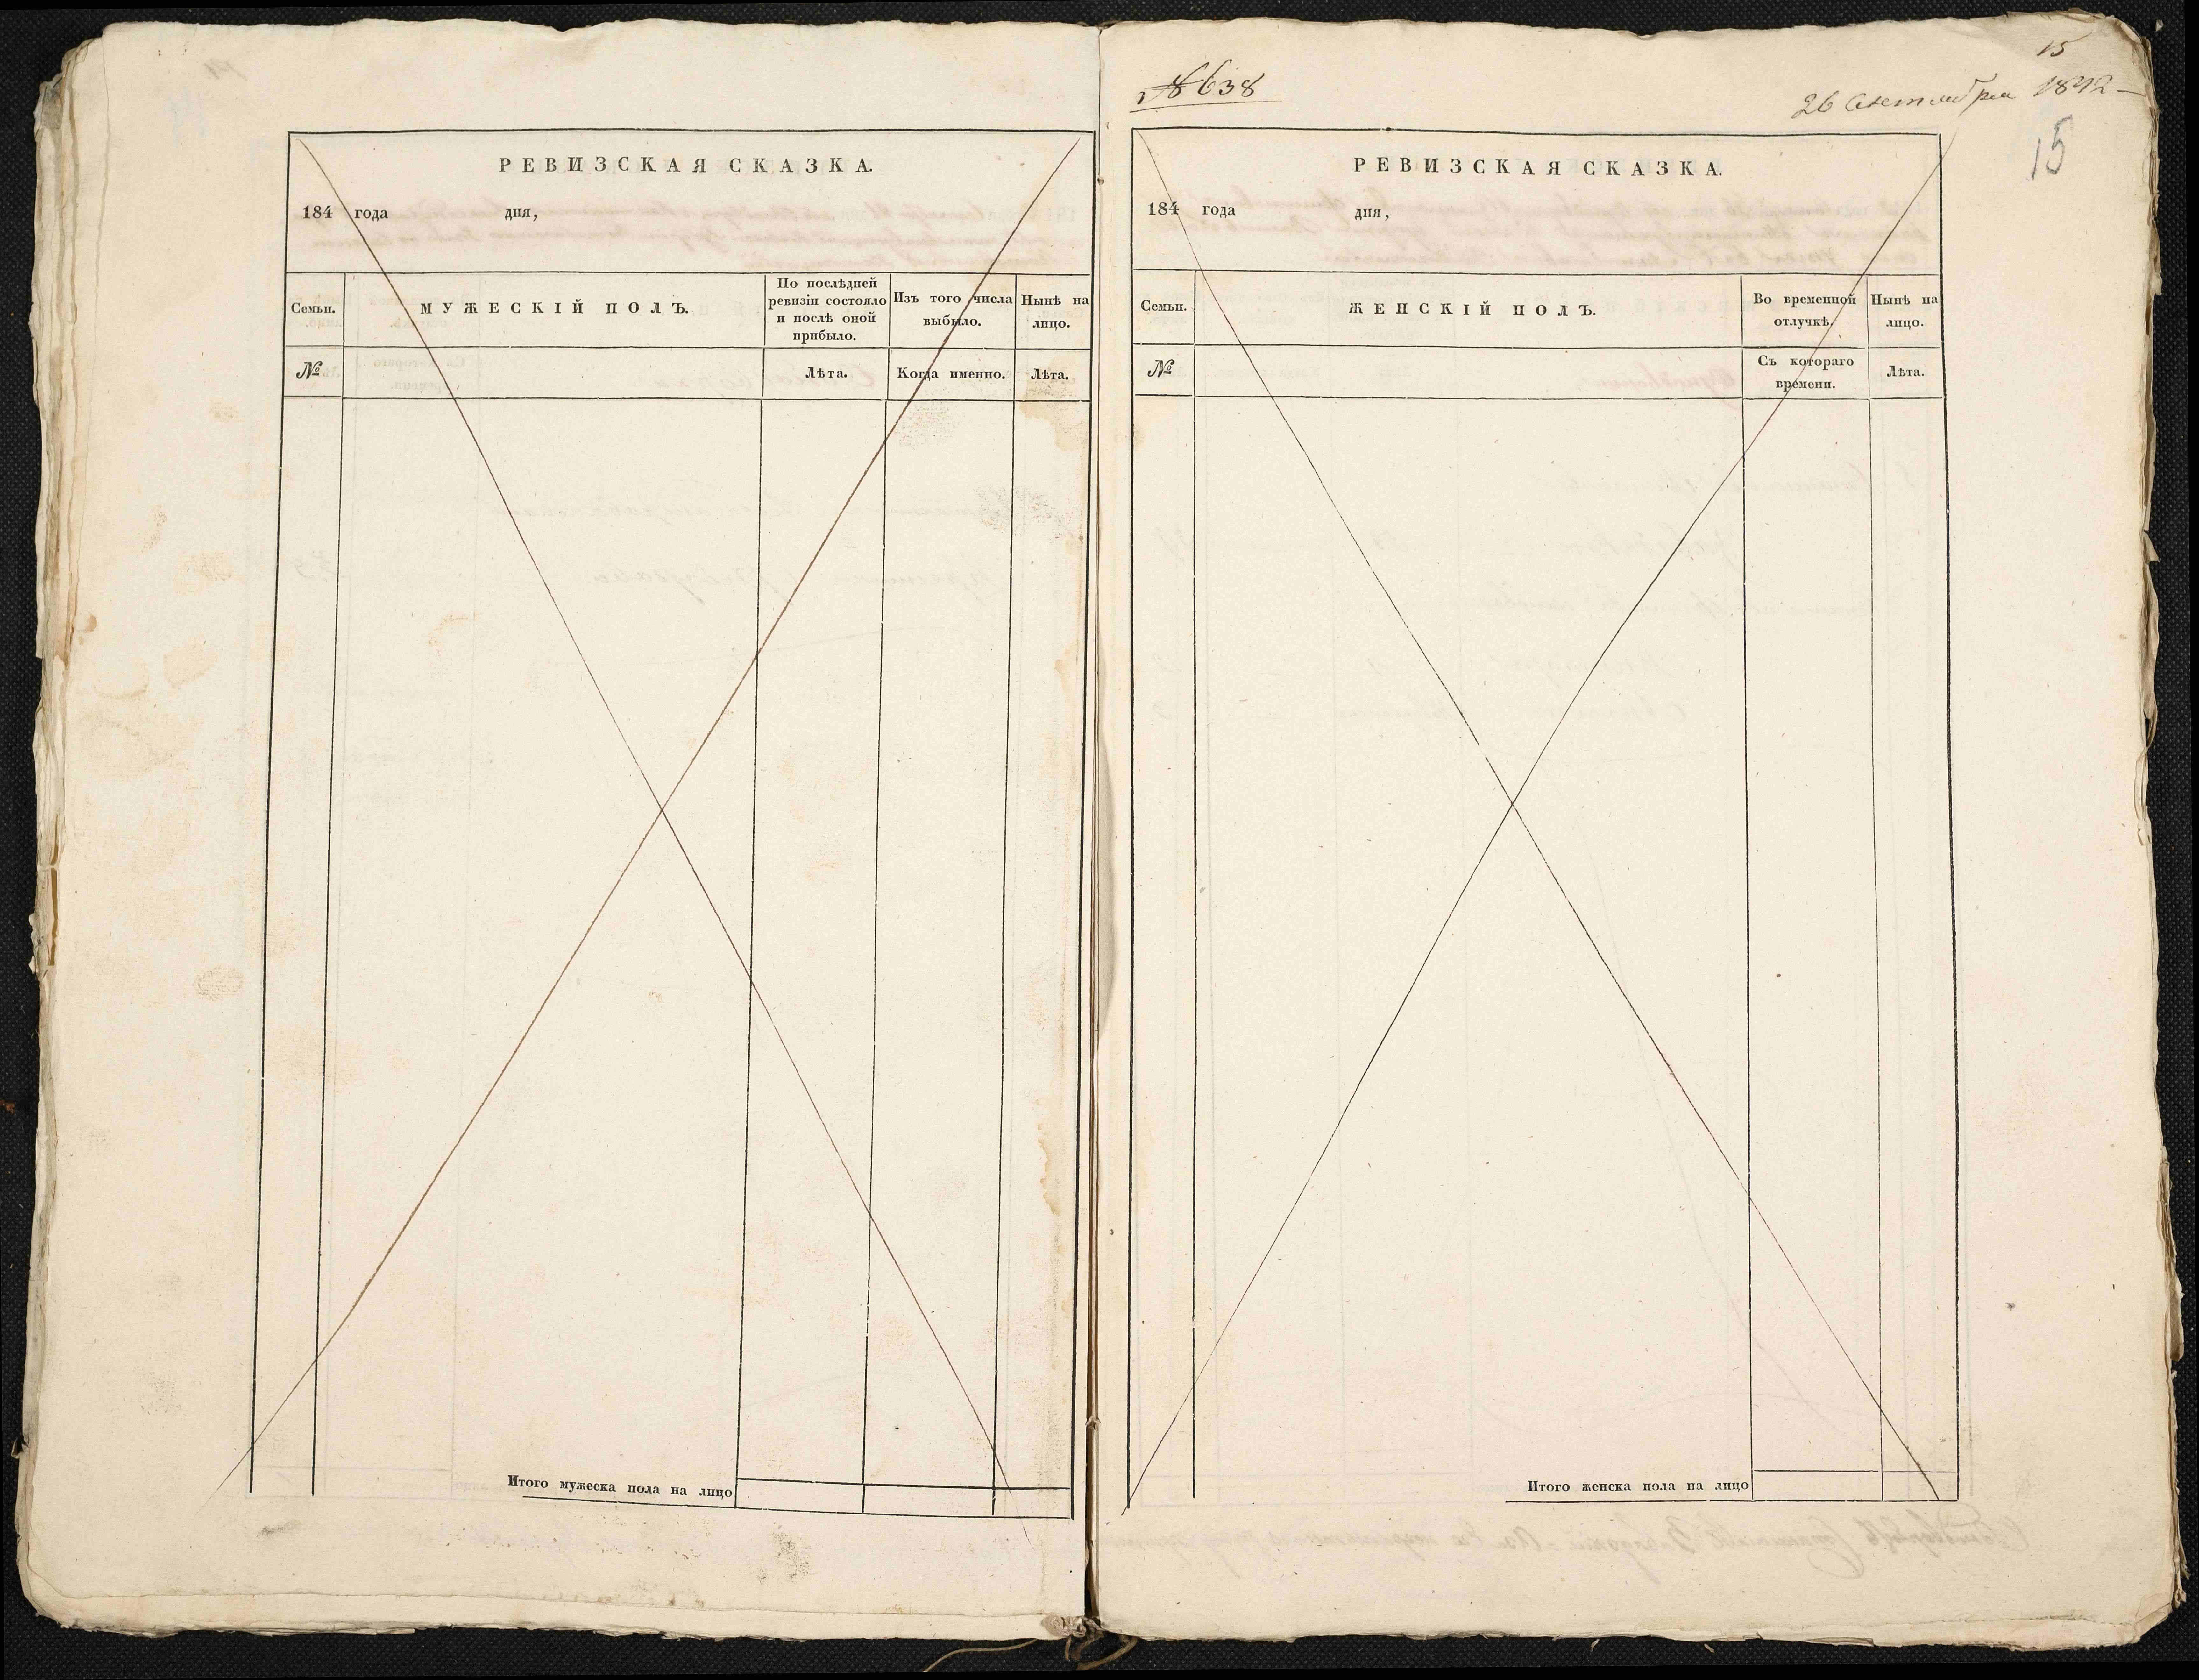 РЕВИЗСКАЯ СКАЗКА.
184 года дня,
Семьи.
МУЖЕСКІЙ ПОЛЪ.
По послѣдней
ревизіи состояло
и послѣ оной
прибыло.
Изъ того числа
выбыло.
Нынѣ на
лицо.
№
Лѣта.
Когда именно.
Лѣта.
Итого мужеска пола на лицо
№ 638
15
26 Октября 1842
15
РЕВИЗСКАЯ СКАЗКА.
184 года дня,
Семьи.
ЖЕНСКІЙ ПОЛЪ.
Во временной
отлучкѣ.
Нынѣ на
лицо.
№
Съ котораго
времени.
Лѣта.
Итого женска пола на лицо